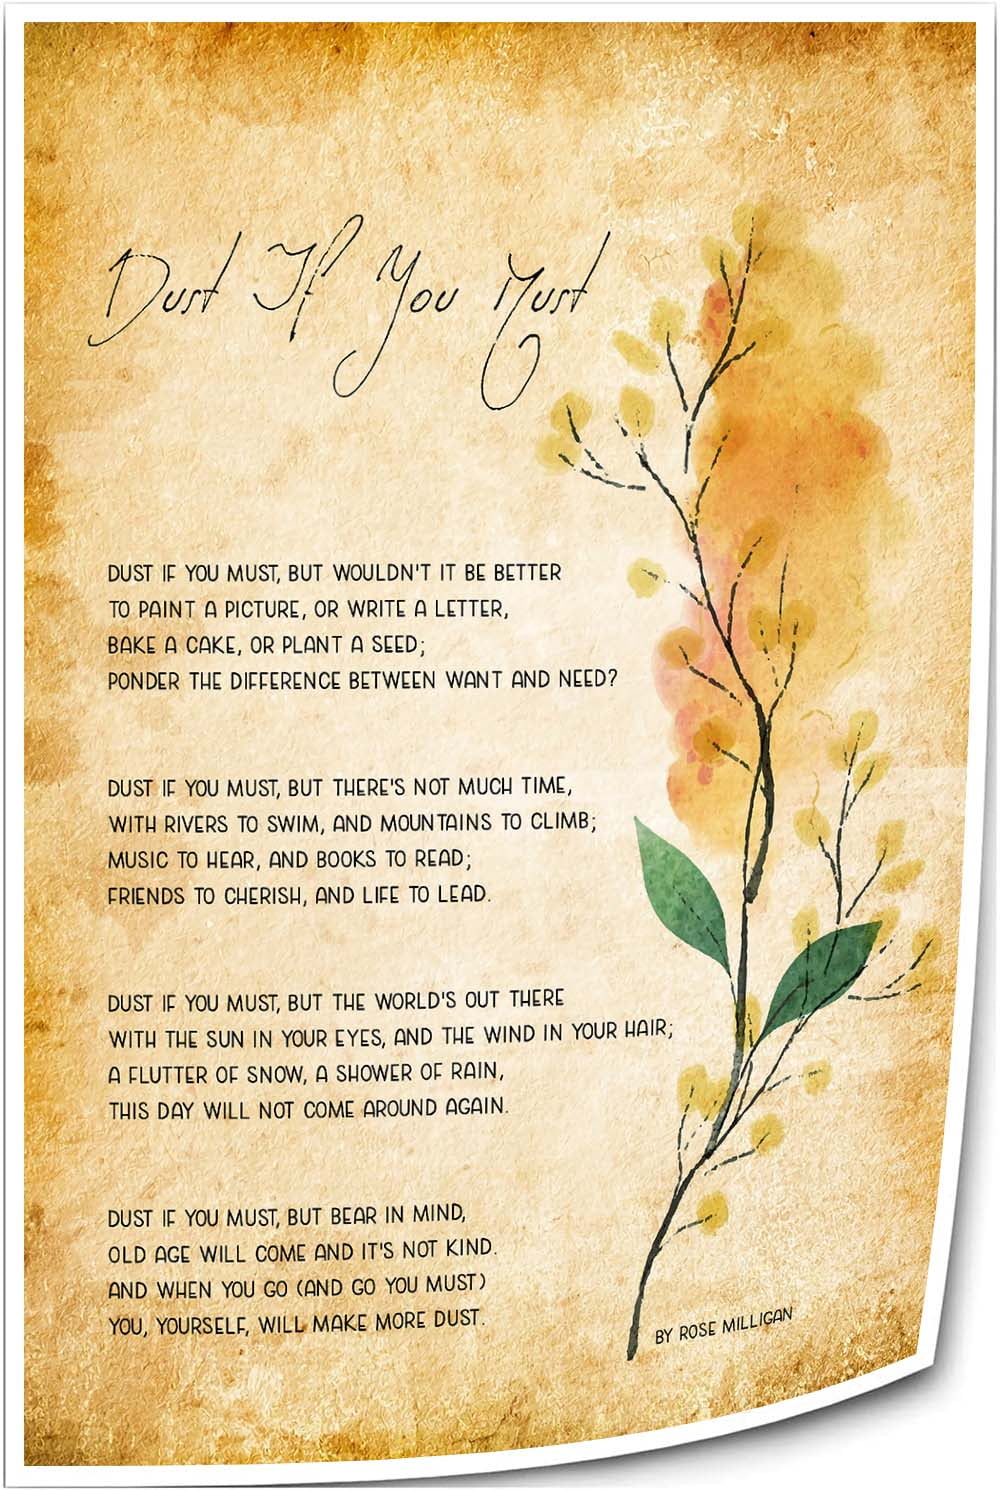 Dust If You Must
DUST IF YOU MUST, BUT WOULDN'T IT BE BETTER
TO PAINT A PICTURE, OR WRITE A LETTER,
BAKE A CAKE, OR PLANT A SEED;
PONDER THE DIFFERENCE BETWEEN WANT AND NEED?
DUST IF YOU MUST, BUT THERE'S NOT MUCH TIME,
WITH RIVERS TO SWIM, AND MOUNTAINS TO CLIMB;
MUSIC TO HEAR, AND BOOKS TO READ;
FRIENDS TO CHERISH, AND LIFE TO LEAD.
DUST IF YOU MUST, BUT THE WORLD'S OUT THERE
WITH THE SUN IN YOUR EYES, AND THE WIND IN YOUR HAIR;
A FLUTTER OF SNOW, A SHOWER OF RAIN,
THIS DAY WILL NOT COME AROUND AGAIN.
DUST IF YOU MUST, BUT BEAR IN MIND,
OLD AGE WILL COME AND IT'S NOT KIND.
AND WHEN YOU GO (AND GO YOU MUST)
YOU, YOURSELF, WILL MAKE MORE DUST.
BY ROSE MILLIGAN